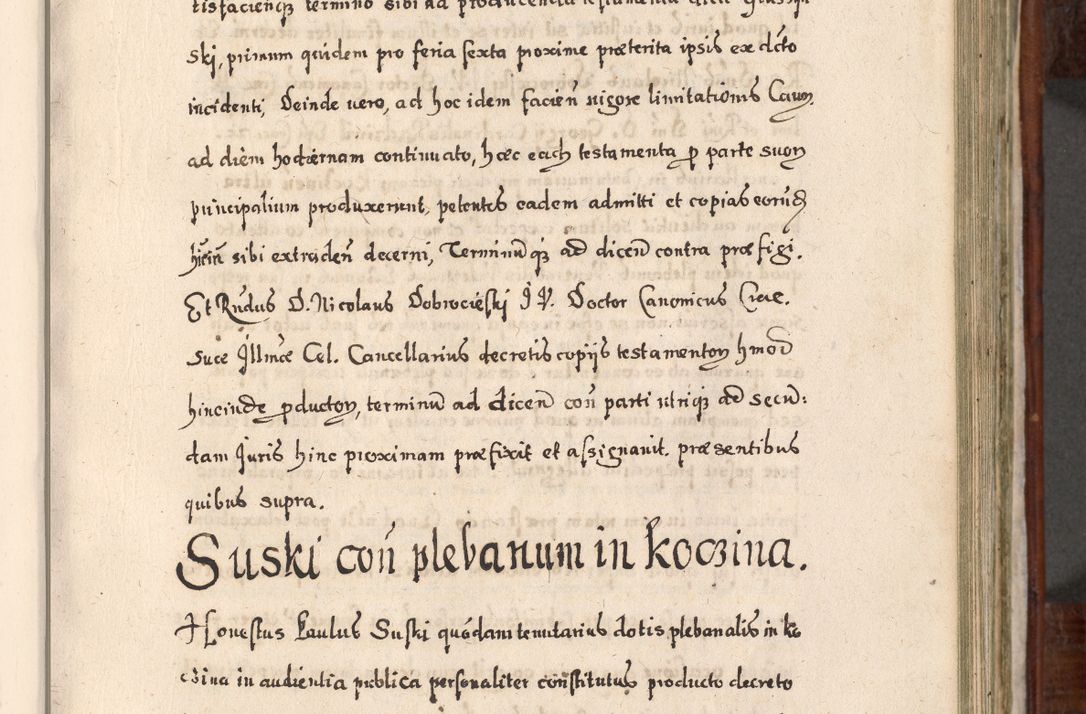 tisfacienq₃ termino sibi ad producendū testamenta
ski, primum quidem pro feria sexta proxime præterita ipsis ex dcto
incidenti, Deinde uero, ad hoc idem facien̄ uigore limitationis Caus.
ad diem hodiernam continuato, hæc testamenta ꝑ parte suoꝝ
principalium produxerunt, petentes eadem admitti et copias eorūd
sibi extraden̄ decerni, Terminū qꝫ ad dicen̄ contra præfigi.
Et Rndus D. Nicolaus Dobrocieski I V. Doctor Canonicus Crac.
Suæ Illmæ Cel. Cancellarius decretis copijs testamentoꝝ hmōd
hincinde ꝓductoꝝ, terminū ad dicen̄ con̄ parti utriqꝫ ad secun:
dam Juris hinc proximam præfixit et assignauit. præsentibus
quibus supra.
Suski con̄ plebanum in Koczina.
Honestus Paulus Suski quōdam tenutarius dotis plebanalis in Ko
czina in audientia publica personaliter constitutus producto decreto